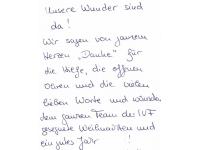 Unsere Wunder sind
da!
Wir sagen von ganzem
Herzen „Danke" für
die Hilfe, die offenen
Ohren und die vielen
lieben Worte und wünschen
dem ganzen Team der IVF
gesegnete Weihnachten und
ein gutes Jahr!